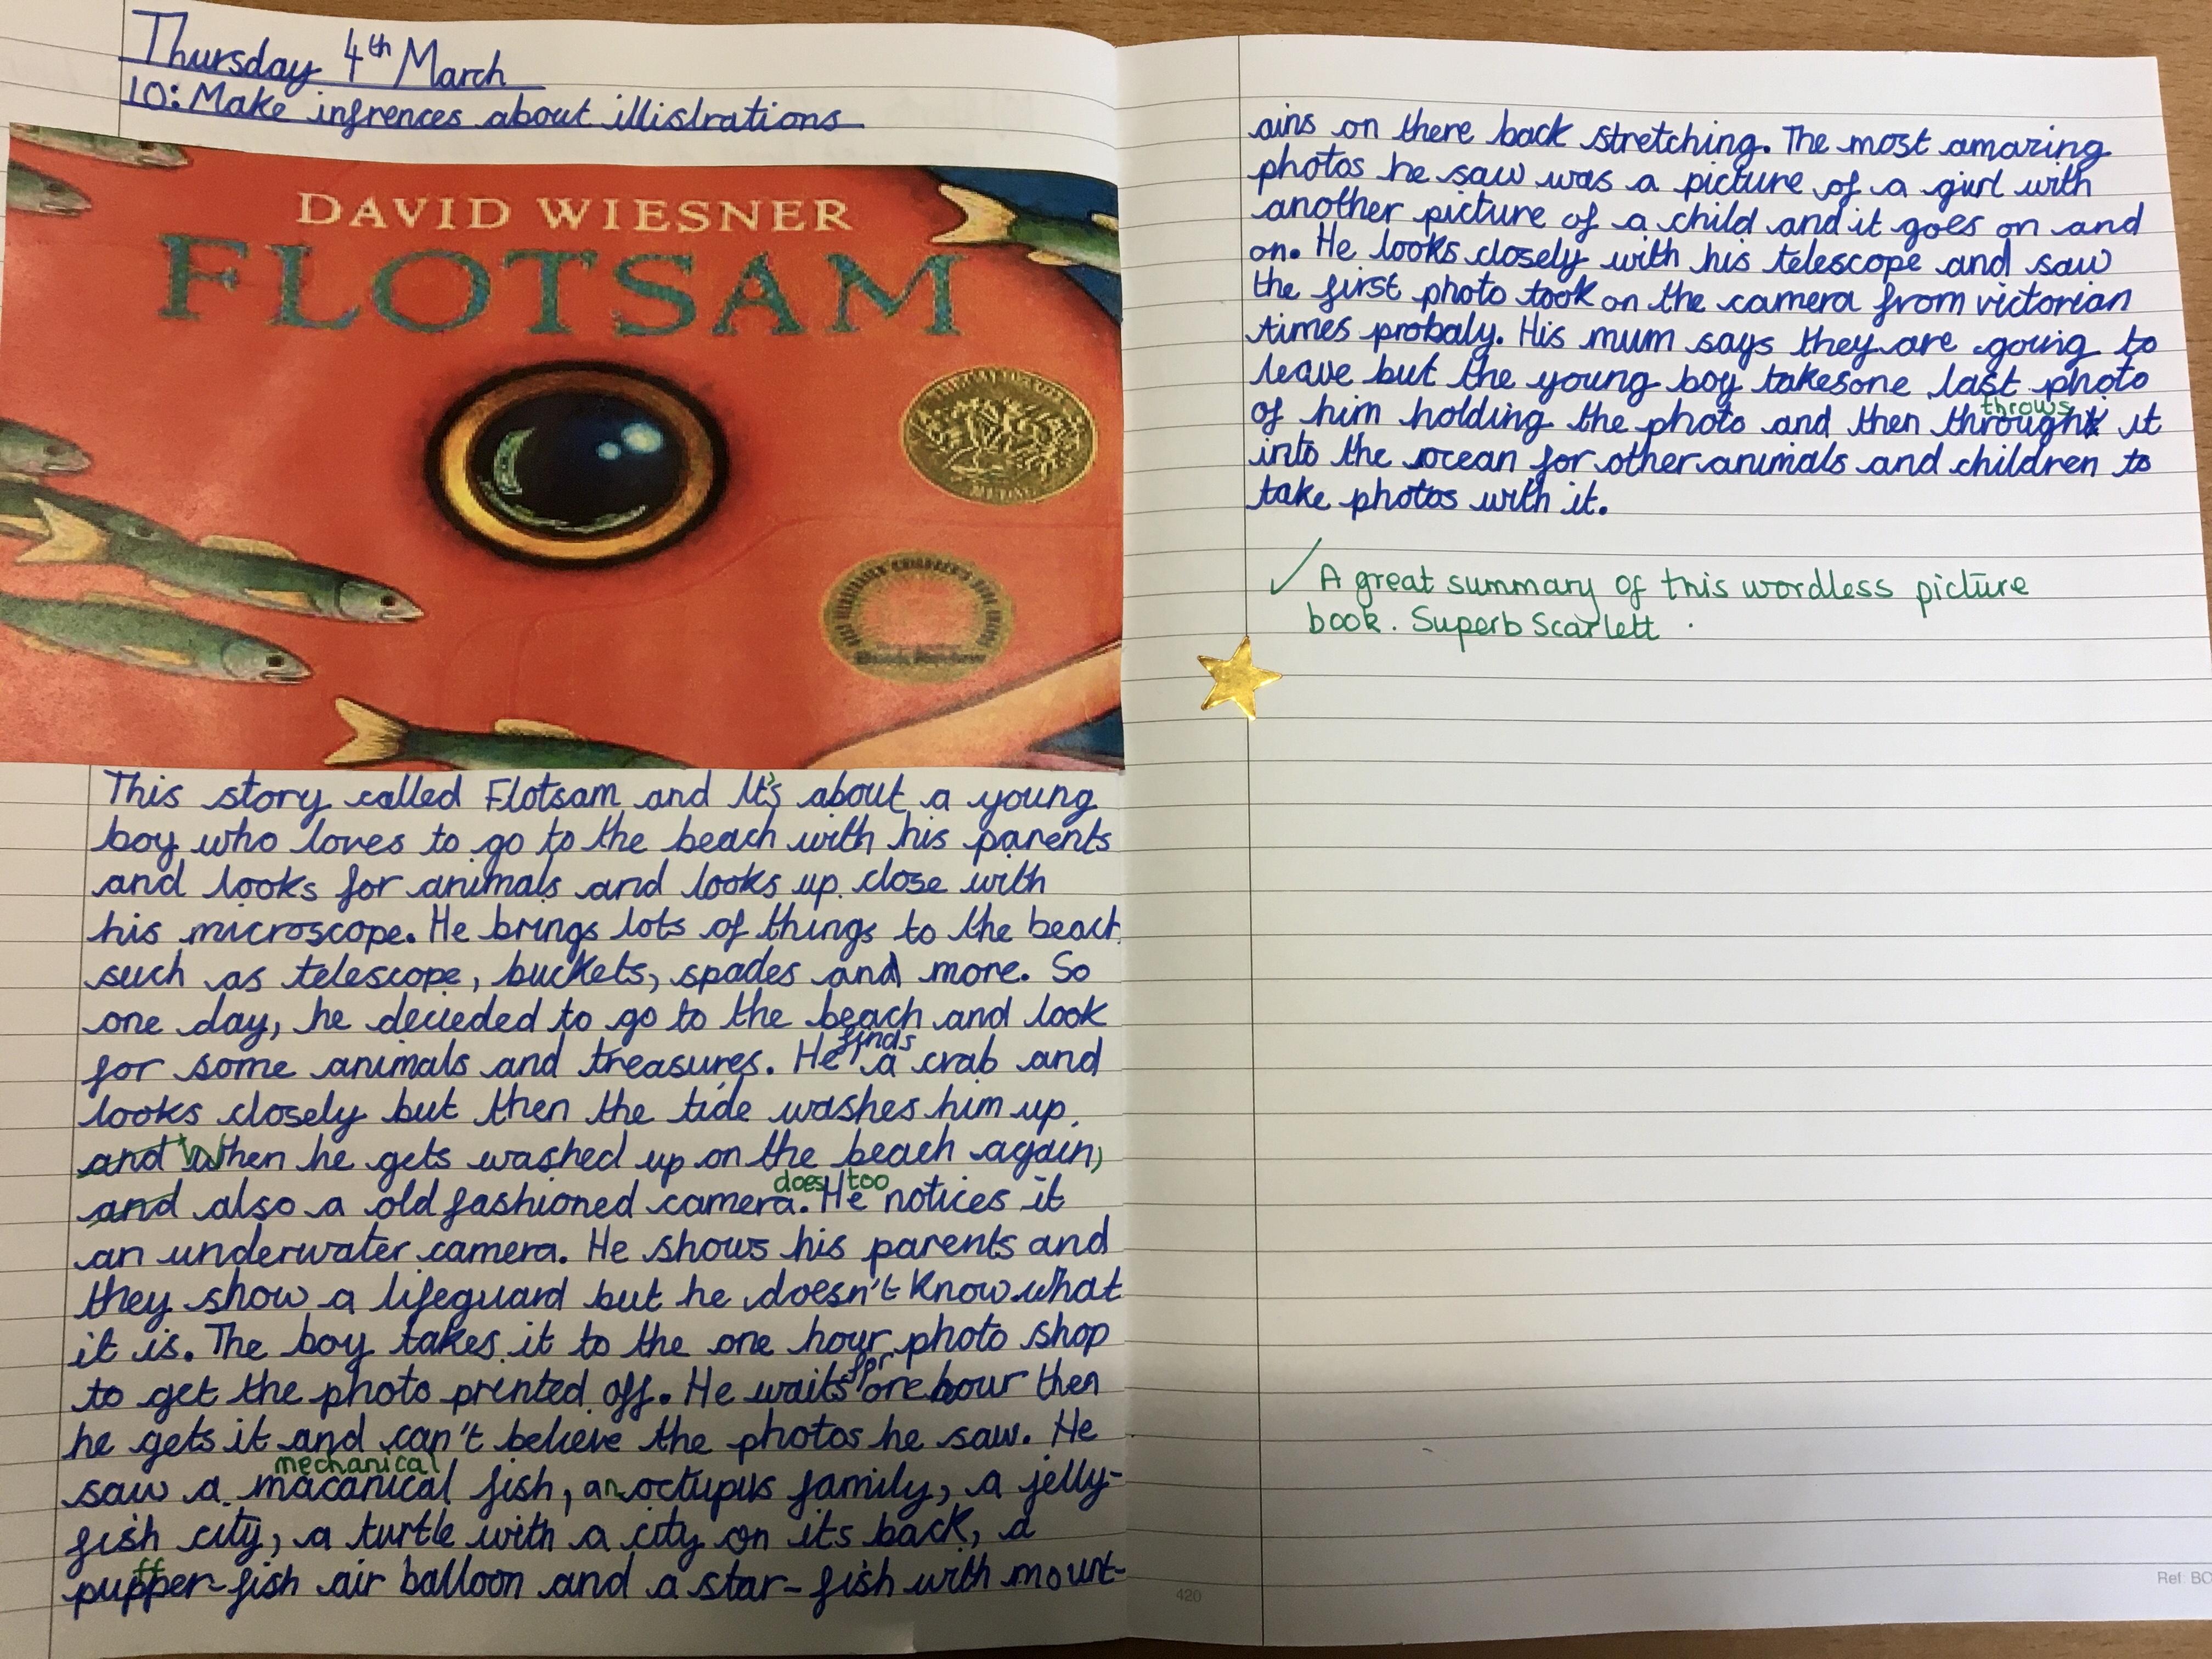 Thursday 4th March
10: Make infrences about illistrations
DAVID WIESNER
FLOTSAM
MEDAL
This story called Flotsam and It's about a young
boy who loves to go to the beach with his parents
and looks for animals and looks up close with
his microscope. He brings lots of things to the beach
such as telescope, buckets, spades and more. So
one day, he decieded to go to the beach and look
finds
for some animals and treasures. He a crab and
looks closely but then the tide washes him up.
and When he gets washed up on the beach again,
does too
and also a old fashioned camera. He notices it
an underwater camera. He shows his parents and
they show a lifeguard but he doesn't know what
it is. The boy takes it to the one hour photo shop
for
to get the photo printed off. He waits one hour then
he gets it and can't believe the photos he saw. He
mechanical
saw a macanical fish, an octupus family, a jelly-
fish city, a turtle with a city on its back, a
ff
pupper-fish air balloon and a star-fish with mount-
ains on there back stretching. The most amazing
photos he saw was a picture of a girl with
another picture of a child and it goes on and
on. He looks closely with his telescope and saw
the first photo took on the camera from victorian
times probaly. His mum says they are going to
leave but the young boy takes one last photo
throws
of him holding the photo and then through it
into the ocean for other animals and children to
take photos with it.
A great summary of this wordless picture
book. Superb Scarlett.
420
Ref: BO